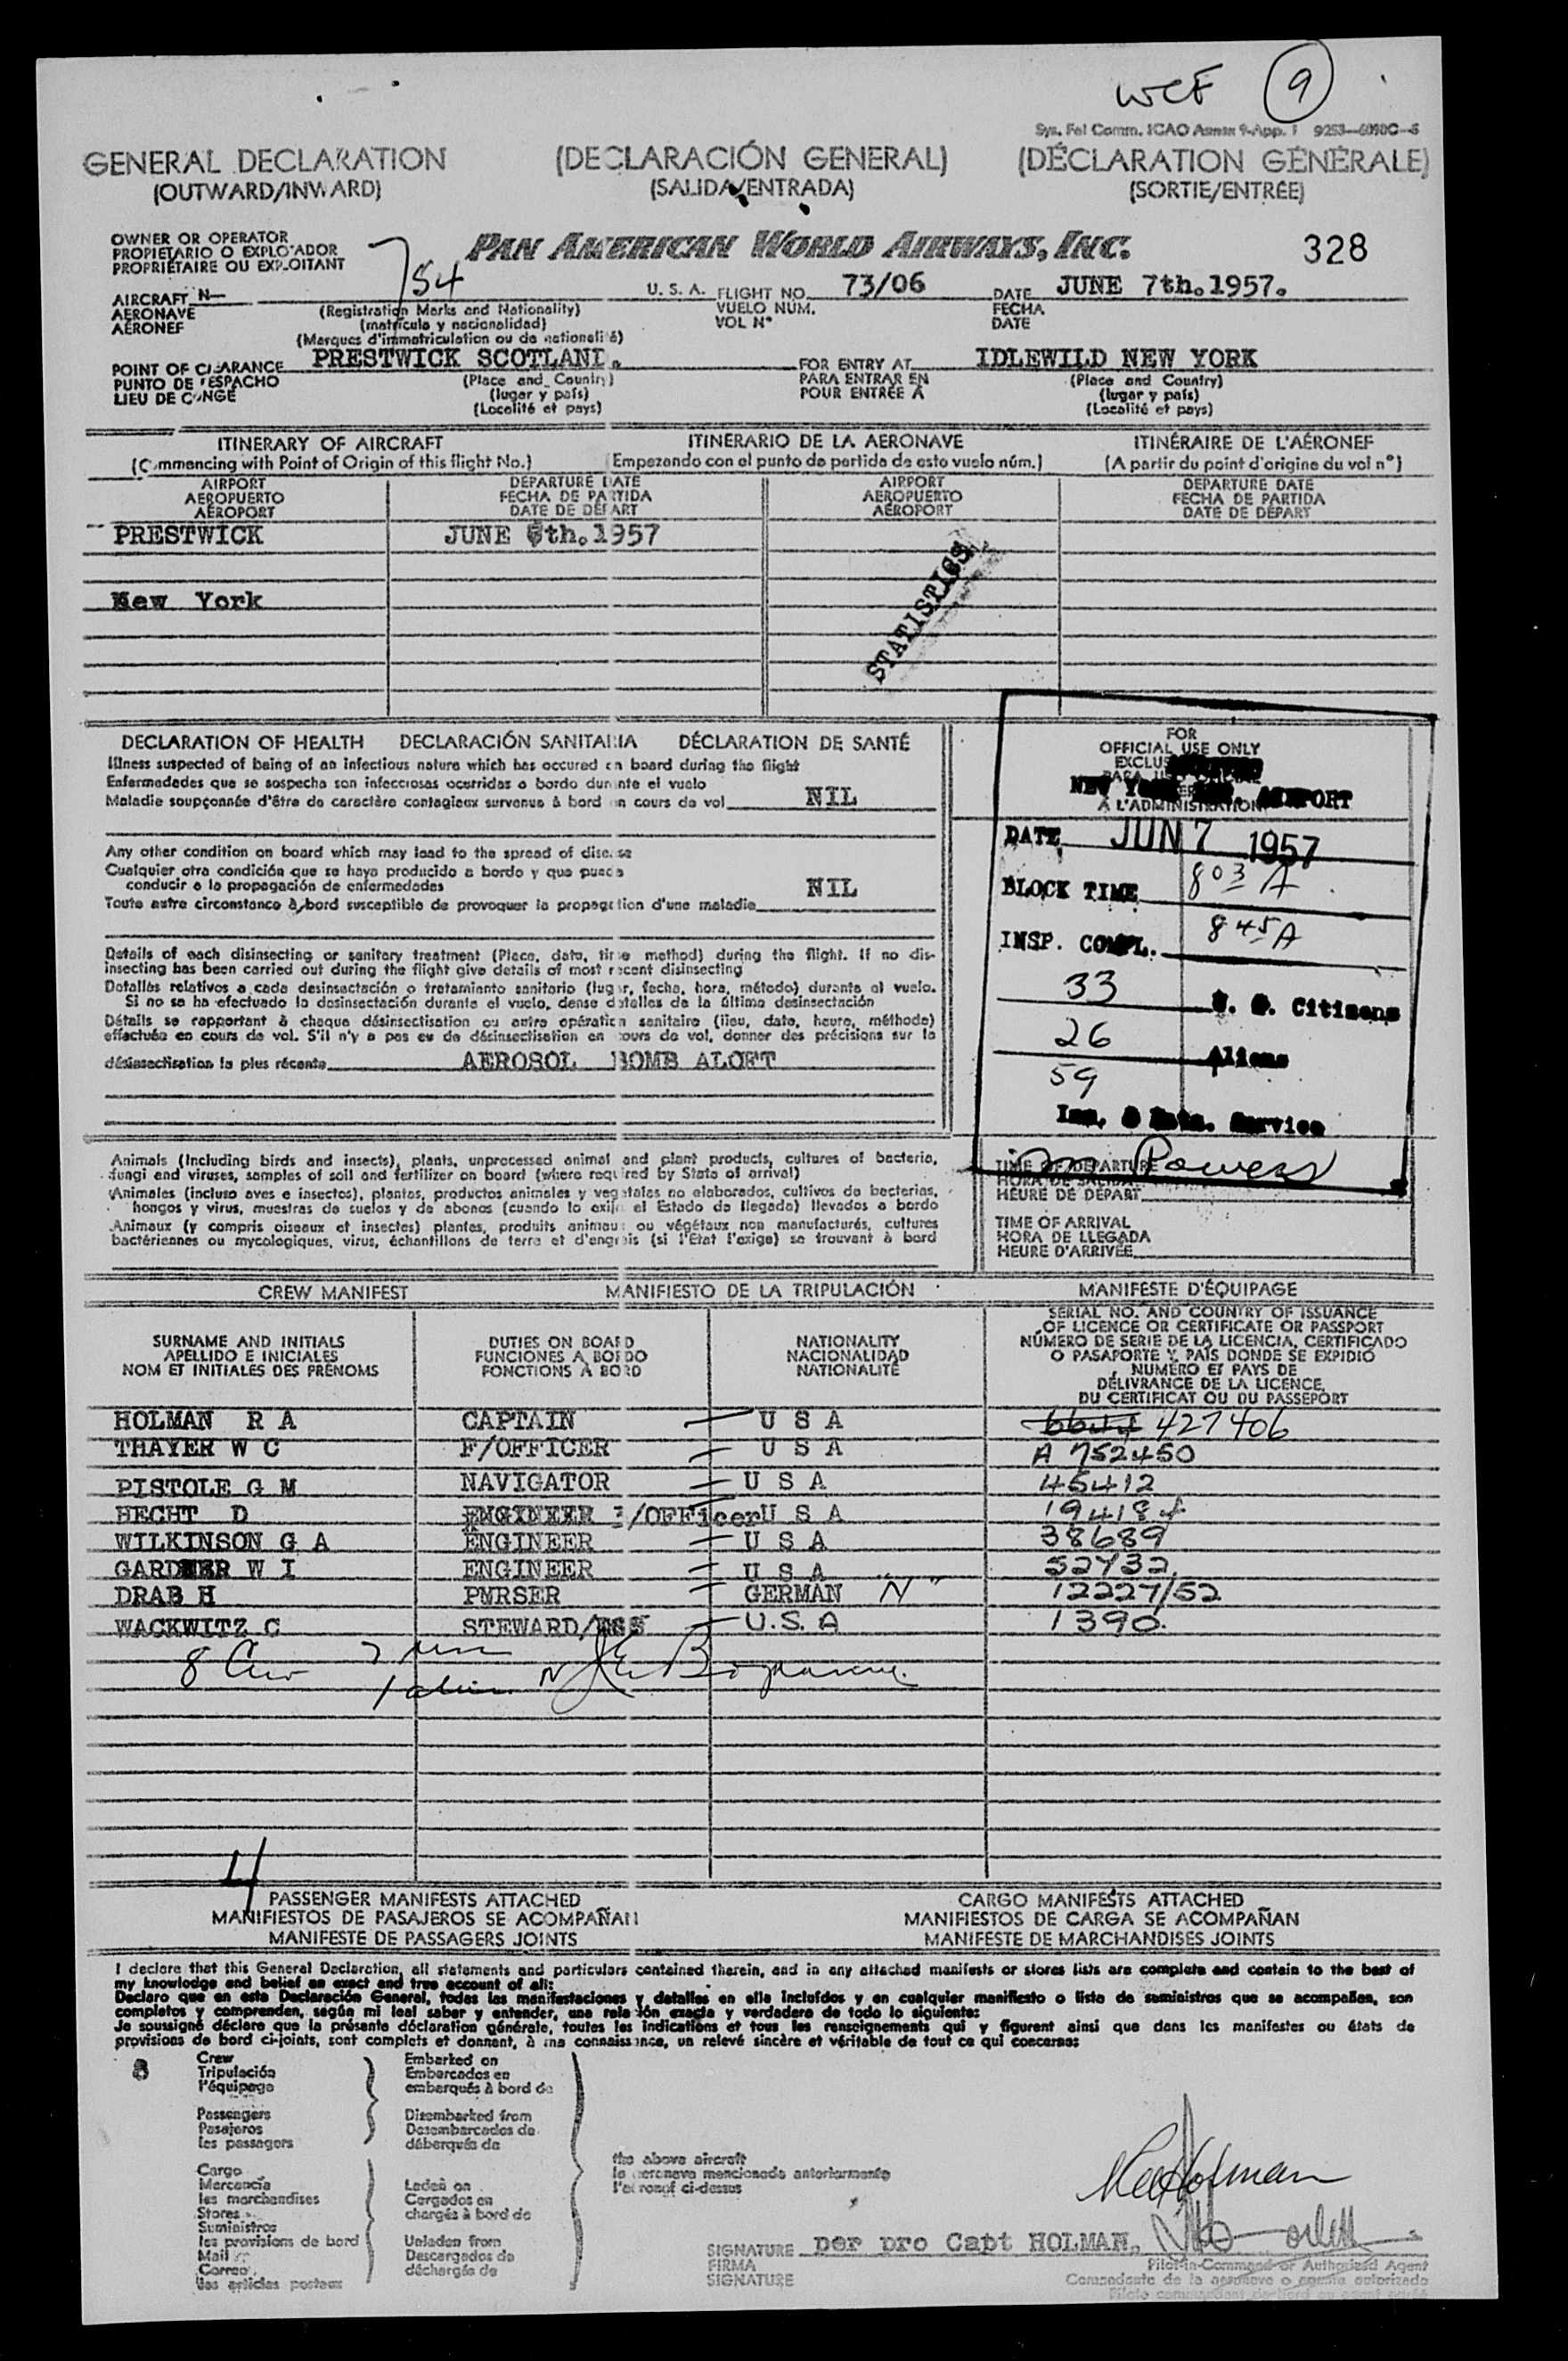 WCF 9
Sys. Fal Comm. ICAO Annex 9-App. 1 9253-6090C-S
GENERAL DECLARATION (DECLARACIÓN GENERAL) (DÉCLARATION GÉNÉRALE)
(OUTWARD/INWARD) (SALIDA/ENTRADA) (SORTIE/ENTRÉE)
OWNER OR OPERATOR
PROPIETARIO O EXPLOTADOR
PROPRIÉTAIRE OU EXPLOITANT
PAN AMERICAN WORLD AIRWAYS, INC. 328
AIRCRAFT N- 754 U. S. A. FLIGHT NO. 73/06 DATE JUNE 7th.1957.
AERONAVE (Registration Marks and Nationality) VUELO NÚM. FECHA
AÉRONEF (matrícula y nacionalidad) VOL N° DATE
(Marques d'immatriculation ou de nationalité)
POINT OF CLEARANCE PRESTWICK SCOTLAND. FOR ENTRY AT IDLEWILD NEW YORK
PUNTO DE DESPACHO (Place and Country) PARA ENTRAR EN (Place and Country)
LIEU DE CONGÉ (lugar y país) POUR ENTRÉE A (lugar y país)
(Localité et pays) (Localité et pays)
ITINERARY OF AIRCRAFT ITINERARIO DE LA AERONAVE ITINÉRAIRE DE L'AÉRONEF
(Commencing with Point of Origin of this flight No.) (Empezando con el punto de partida de este vuelo núm.) (A partir du point d'origine du vol n°)
AIRPORT DEPARTURE DATE AIRPORT DEPARTURE DATE
AEROPUERTO FECHA DE PARTIDA AEROPUERTO FECHA DE PARTIDA
AÉROPORT DATE DE DÉPART AÉROPORT DATE DE DÉPART
PRESTWICK JUNE th.1957
STATISTICS
New York
DECLARATION OF HEALTH DECLARACIÓN SANITARIA DÉCLARATION DE SANTÉ
Illness suspected of being of an infectious nature which has occured on board during the flight
Enfermedades que se sospecha son infecciosas ocurridas a bordo durante el vuelo
Maladie soupçonnée d'être de caractère contagieux survenue à bord en cours de vol NIL
Any other condition on board which may lead to the spread of disease
Cualquier otra condición que se haya producido a bordo y que pueda
conducir a la propagación de enfermedades
Toute autre circonstance à bord susceptible de provoquer la propagation d'une maladie NIL
Details of each disinsecting or sanitary treatment (Place, date, time method) during the flight. If no dis-
insecting has been carried out during the flight give details of most recent disinsecting
Detallés relativos a cada desinsectación o tratamiento sanitario (lugar, fecha, hora, método) durante el vuelo.
Si no se ha efectuado la desinsectación durante el vuelo, dense detalles de la última desinsectación
Détails se rapportant à chaque désinsectisation ou autre opération sanitaire (lieu, date, heure, méthode)
effectuée en cours de vol. S'il n'y a pas eu de désinsectisation en cours de vol, donner des précisions sur la
désinsectisation la plus récente AEROSOL BOMB ALOFT
FOR
OFFICIAL USE ONLY
NEW AIRPORT
A L'ADMINISTRATION
DATE JUN 7 1957
BLOCK TIME 803 A
INSP. COMPL. 845 A
33 U. S. Citizens
26 Aliens
59
Imm. & Natn. Service
Powers
Animals (Including birds and insects), plants, unprocessed animal and plant products, cultures of bacteria,
fungi and viruses, samples of soil and fertilizer on board (where required by State of arrival)
Animales (incluso aves e insectos), plantas, productos animales y vegetales no elaborados, cultivos de bacterias,
hongos y virus, muestras de suelos y de abonos (cuando lo exija el Estado de llegada) llevados a bordo
Animaux (y compris oiseaux et insectes) plantes, produits animaux ou végétaux non manufacturés, cultures
bactériennes ou mycologiques, virus, échantillons de terre et d'engrais (si l'Etat l'exige) se trouvant à bord
TIME OF DEPARTURE
HORA DE SALIDA
HEURE DE DÉPART
TIME OF ARRIVAL
HORA DE LLEGADA
HEURE D'ARRIVÉE
CREW MANIFEST MANIFIESTO DE LA TRIPULACIÓN MANIFESTE D'ÉQUIPAGE
SURNAME AND INITIALS
APELLIDO E INICIALES
NOM ET INITIALES DES PRÉNOMS
DUTIES ON BOARD
FUNCIONES A BORDO
FONCTIONS À BORD
NATIONALITY
NACIONALIDAD
NATIONALITÉ
SERIAL NO. AND COUNTRY OF ISSUANCE
OF LICENCE OR CERTIFICATE OR PASSPORT
NÚMERO DE SERIE DE LA LICENCIA, CERTIFICADO
O PASAPORTE Y PAÍS DONDE SE EXPIDIÓ
NUMÉRO ET PAYS DE
DÉLIVRANCE DE LA LICENCE,
DU CERTIFICAT OU DU PASSEPORT
HOLMAN R A CAPTAIN U S A 427406
THAYER W C F/OFFICER U S A A 752450
PISTOLE G M NAVIGATOR U S A 45412
HECHT D ENGINEER /OFFicer U S A 19418
WILKINSON G A ENGINEER U S A 38689
GARDNER W I ENGINEER U S A 52732
DRAB H PURSER GERMAN "N" 12227/52
WACKWITZ C STEWARD/ESS U.S.A 1390.
8 Crew 7
1 alien N
4
PASSENGER MANIFESTS ATTACHED CARGO MANIFESTS ATTACHED
MANIFIESTOS DE PASAJEROS SE ACOMPAÑAN MANIFIESTOS DE CARGA SE ACOMPAÑAN
MANIFESTE DE PASSAGERS JOINTS MANIFESTE DE MARCHANDISES JOINTS
I declare that this General Declaration, all statements and particulars contained therein, and in any attached manifests or stores lists are complete and contain to the best of
my knowledge and belief an exact and true account of all:
Declaro que en esta Declaración General, todas las manifestaciones y detalles en ella incluídos y en cualquier manifiesto o lista de suministros que se acompañen, son
completos y comprenden, según mi leal saber y entender, una relación exacta y verdadera de todo lo siguiente:
Je soussigné déclare que la présente déclaration générale, toutes les indications et tous les renseignements qui y figurent ainsi que dans les manifestes ou états de
provisions de bord ci-joints, sont complets et donnent, à ma connaissance, un relevé sincère et véritable de tout ce qui concerne:
8 Crew Embarked on
Tripulación Embarcados en
l'équipage embarqués à bord de
Passengers Disembarked from
Pasajeros Desembarcados de
les passagers débarqués de
the above aircraft
la aeronave mencionada anteriormente
l'aéronef ci-dessus
Cargo
Mercancía Laden on
les marchandises Cargados en
Stores chargés à bord de
Suministros
les provisions de bord Unladen from
Mail Descargados de
Correo déchargés de
les articles postaux
Holman
SIGNATURE per pro Capt HOLMAN.
FIRMA Pilot-in-Command or Authorized Agent
SIGNATURE Comandante de la aeronave o agente autorizado